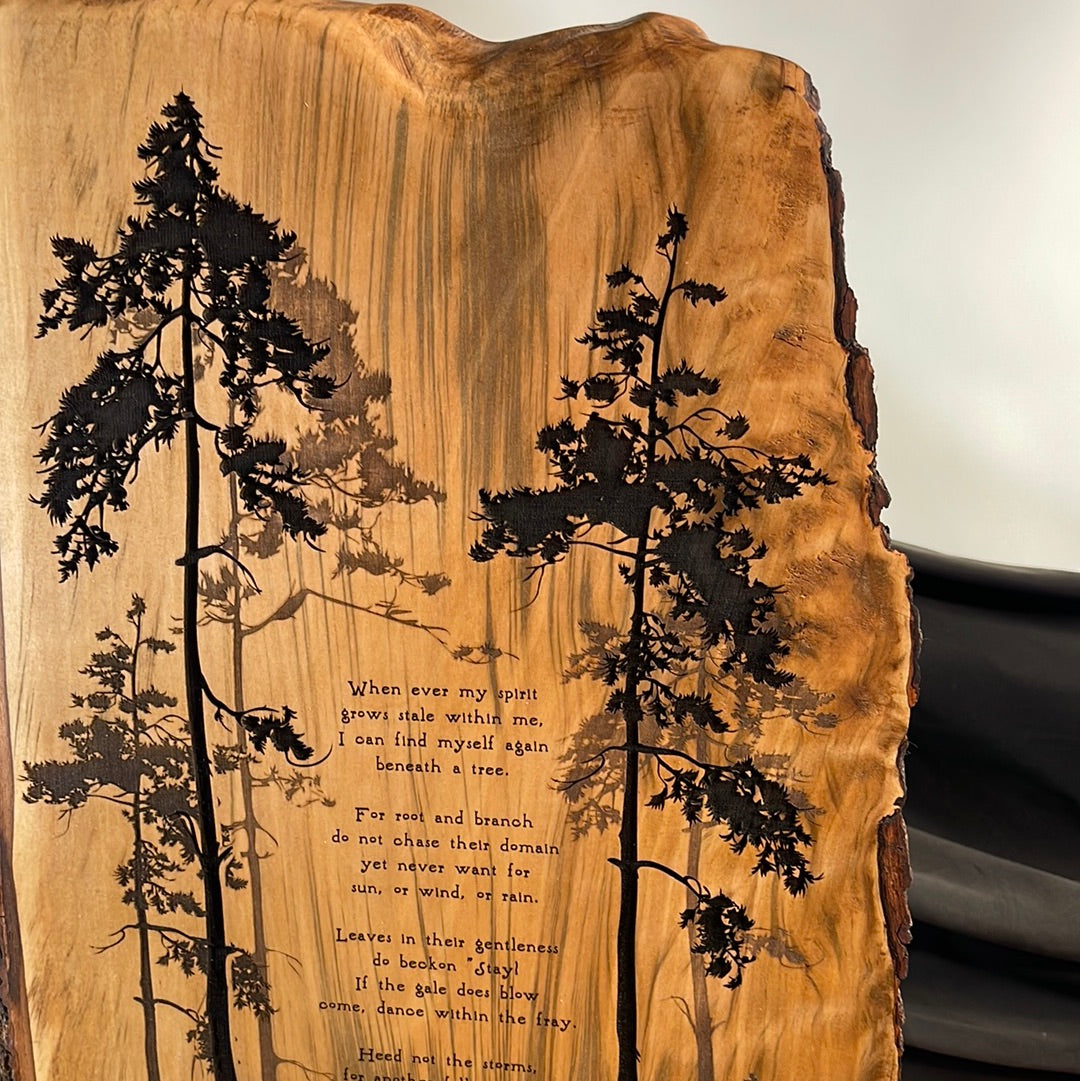 When ever my spirit
grows stale within me,
I can find myself again
beneath a tree.
For root and branch
do not chase their domain
yet never want for
sun, or wind, or rain.
Leaves in their gentleness
do beckon "Stay!
If the gale does blow
come, dance within the fray.
Heed not the storms,
for